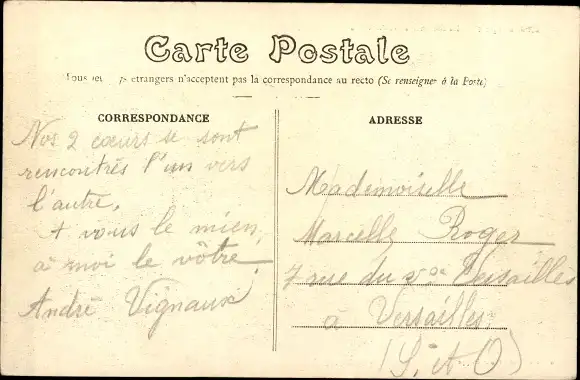 Carte Postale
Tous les pays etrangers n'acceptent pas la correspondance au recto (Se renseigner à la Poste)
CORRESPONDANCE
Nos 2 cœurs se sont
rencontrés l'un vers
l'autre,
+ vous le mien,
à moi le vôtre
André Vignaux
ADRESSE
Mademoiselle
Marcelle Roger
7 rue du Versailles
à Versailles
(S. et O)